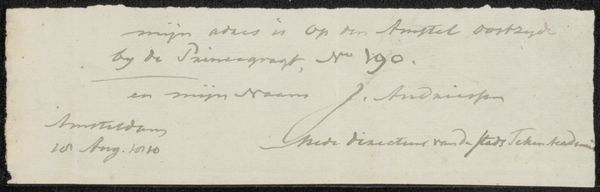 mijn adres is Op den Amstel oostzyde
by de Prinsegragt, No 190.
en mijn Naam J. Andriessen
Amsterdam
18 Aug. 1810
Mede directeur van de Stads Teken Academie